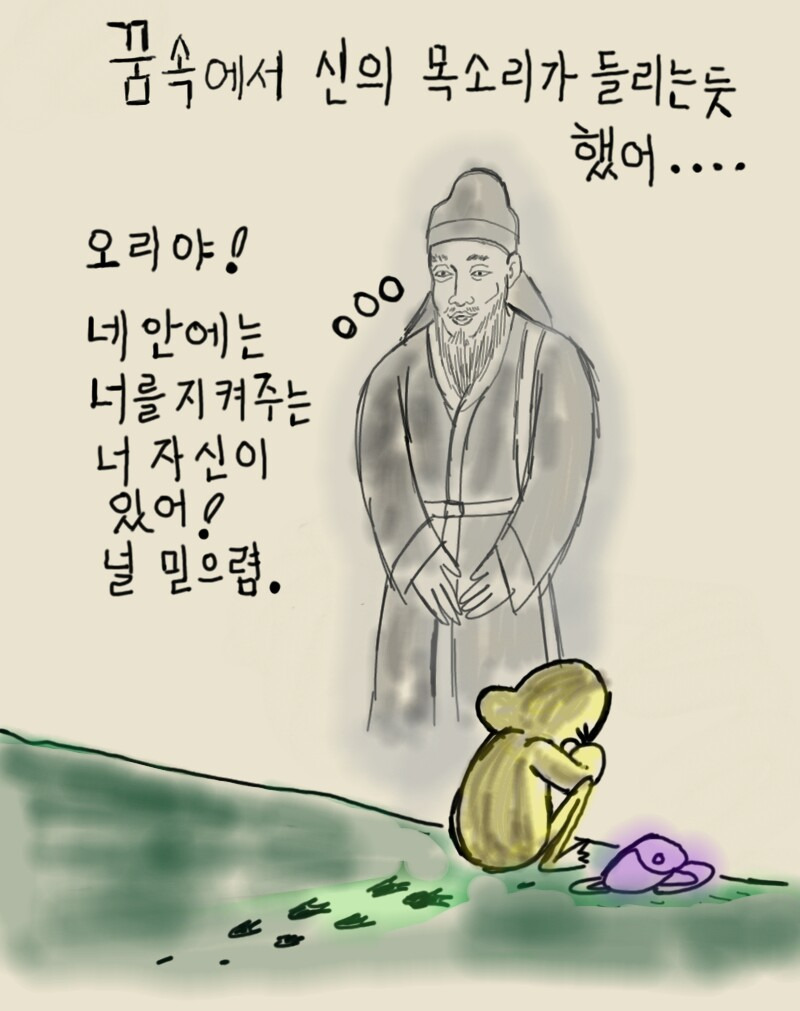 꿈속에서 신의 목소리가 들리는듯
했어....
오리야!
네 안에는
너를 지켜주는
너 자신이
있어!
널 믿으렴.